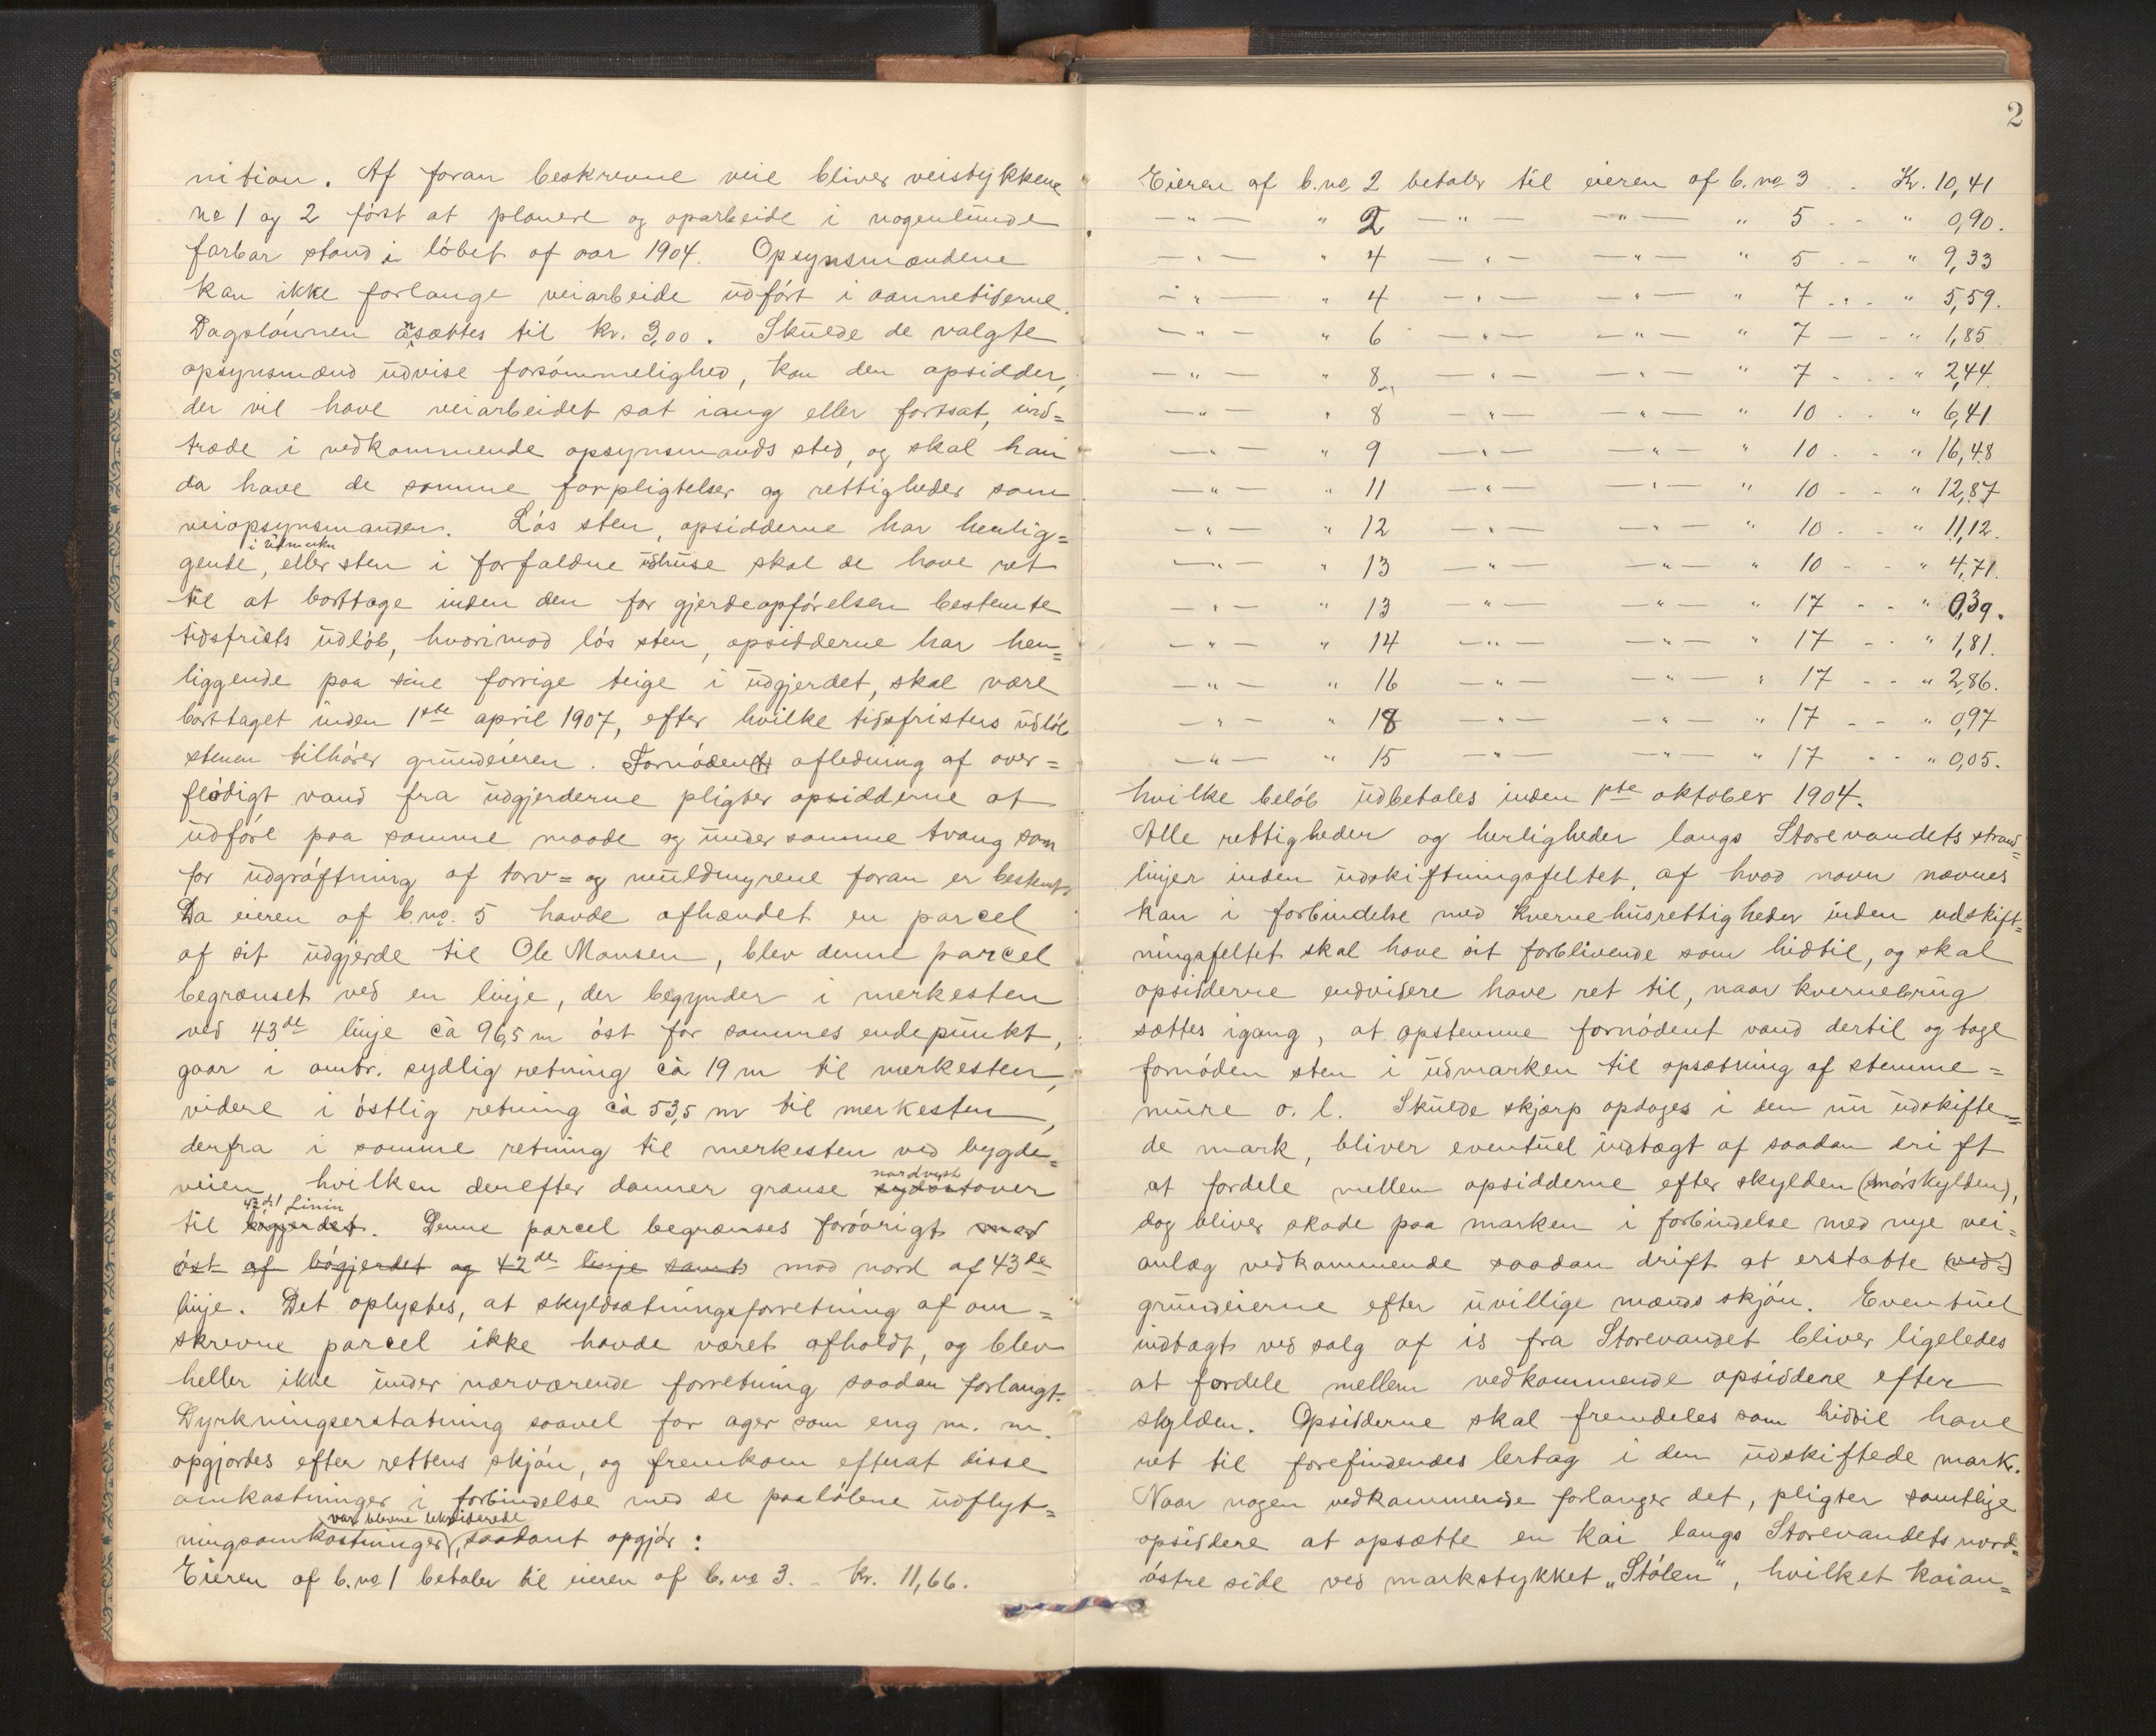 nition. Af foran beskrevne veie bliver veistykkene
no 1 og 2 først at planere og oparbeide i nogenlunde
farbar stand i løbet af aar 1904. Opsynsmændene
kan ikke forlange veiarbeide udført i aannetiderne.
Dagslønnen ansættes til kr. 3,00. Skulde de valgte
opsynsmænd udvise forsømmelighed, kan den opsidder,
der vil have veiarbeidet sat igang eller fortsat, ind=
træde i vedkommende opsynsmands sted, og skal han
da have de samme forpligtelser og rettigheder som
veiopsynsmanden. Løs sten, opsidderne har henlig=
i udmarken
gende, eller sten i forfaldne udhuse skal de have ret
til at borttage inden den for gjerdeopførelsen bestemte
tidsfrists udløb, hvorimod løs sten, opsidderne har hen=
liggende paa sine forrige teige i udgjerdet, skal være
borttaget inden 1ste april 1907, efter hvilke tidsfristers udløb
stenen tilhører grundeieren. Fornøden afledning af over=
flødigt vand fra udgjerderne pligter opsidderne at
udføre paa samme maade og under samme tvang som
for udgrøftning af torv= og muldmyrene foran er bestemt.
Da eieren af b.no. 5 havde afhændet en parcel
af sit udgjerde til Ole Monsen, blev denne parcel
begrænset ved en linje, der begynder i merkesten
ved 43de linje ca 96,5 m øst for sammes endepunkt,
gaar i omtr. sydlig retning ca 19 m til merkesten,
videre i østlig retning ca 53,5 m til merkesten,
derfra i samme retning til merkesten ved bygde=
nordvest
veien hvilken derefter danner grænse sydostover
42de Linin
til bøgjerdet. Denne parcel begrænses forøvrigt mod
øst af bøgjerdet og 42de linje samt mod nord af 43de
linje. Det oplystes, at skyldsætningsforretning af om=
skrevne parcel ikke havde været afholdt, og blev
heller ikke under nærværende forretning saadan forlangt.
Dyrkningserstatning saavel for ager som eng m. m.
opgjordes efter rettens skjøn, og fremkom efterat disse
omkastninger i forbindelse med de paaløbne udflyt=
var blevne likviderede
ningsomkostninger, saadant opgjør:
Eieren af b.no 1 betaler til eieren af b.no 3. - Kr. 11,66.
2
Eieren af b.no 2 betaler til eieren af b.no 3 . . Kr. 10,41
—"— " 2 —"— —"— " 5 . . " 0,90.
—"— " 4 —"— —"— " 5 . . " 9,33
—"— " 4 —"— —"— " 7 . . " 5,59.
—"— " 6 —"— —"— " 7 . . " 1,85
—"— " 8 —"— —"— " 7 . . " 2,44
—"— " 8 —"— —"— " 10 . . " 6,41
—"— " 9 —"— —"— " 10 . . " 16,48
—"— " 11 —"— —"— " 10 . . " 12,87
—"— " 12 —"— —"— " 10 . . " 11,12.
—"— " 13 —"— —"— " 10 . . " 4,71.
—"— " 13 —"— —"— " 17 . . " 0,39.
—"— " 14 —"— —"— " 17 . . " 1,81.
—"— " 16 —"— —"— " 17 . . " 2,86.
—"— " 18 —"— —"— " 17 . . " 0,97
—"— " 15 —"— —"— " 17 . . " 0,05.
hvilke beløb udbetales inden 1ste oktober 1904.
Alle rettigheder og herligheder langs Storevandets strand=
linjer inden udskiftningsfeltet, af hvad navn nævnes
kan i forbindelse med kvernehusrettigheder inden udskift=
ningsfeltet skal have sit forblivende som hidtil, og skal
opsidderne endvidere have ret til, naar kvernebrug
sættes igang, at opstemme fornødent vand dertil og tage
fornøden sten i udmarken til opsætning af stemme=
mure o. l. Skulde skjærp opdages i den nu udskifte=
de mark, bliver eventuel indtægt af saadan drift
at fordele mellem opsidderne efter skylden (smørskylden),
dog bliver skade paa marken i forbindelse med nye vei=
anlæg vedkommende saadan drift at erstatte (ved=)
grundeierne efter uvillige mænds skjøn. Eventuel
indtægt ved salg af is fra Storevandet bliver ligeledes
at fordele mellem vedkommende opsiddere efter
skylden. Opsidderne skal fremdeles som hidtil have
ret til forefindendes lertag i den udskiftede mark.
Naar nogen vedkommende forlanger det, pligter samtlige
opsiddere at opsætte en kai langs Storevandets nord=
østre side ved markstykket „Stølen“, hvilket kaian=